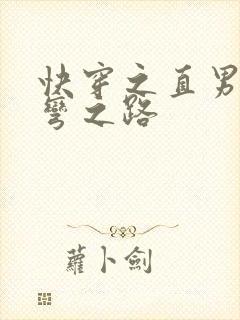 快穿之直男
彎之路
蘿卜劍